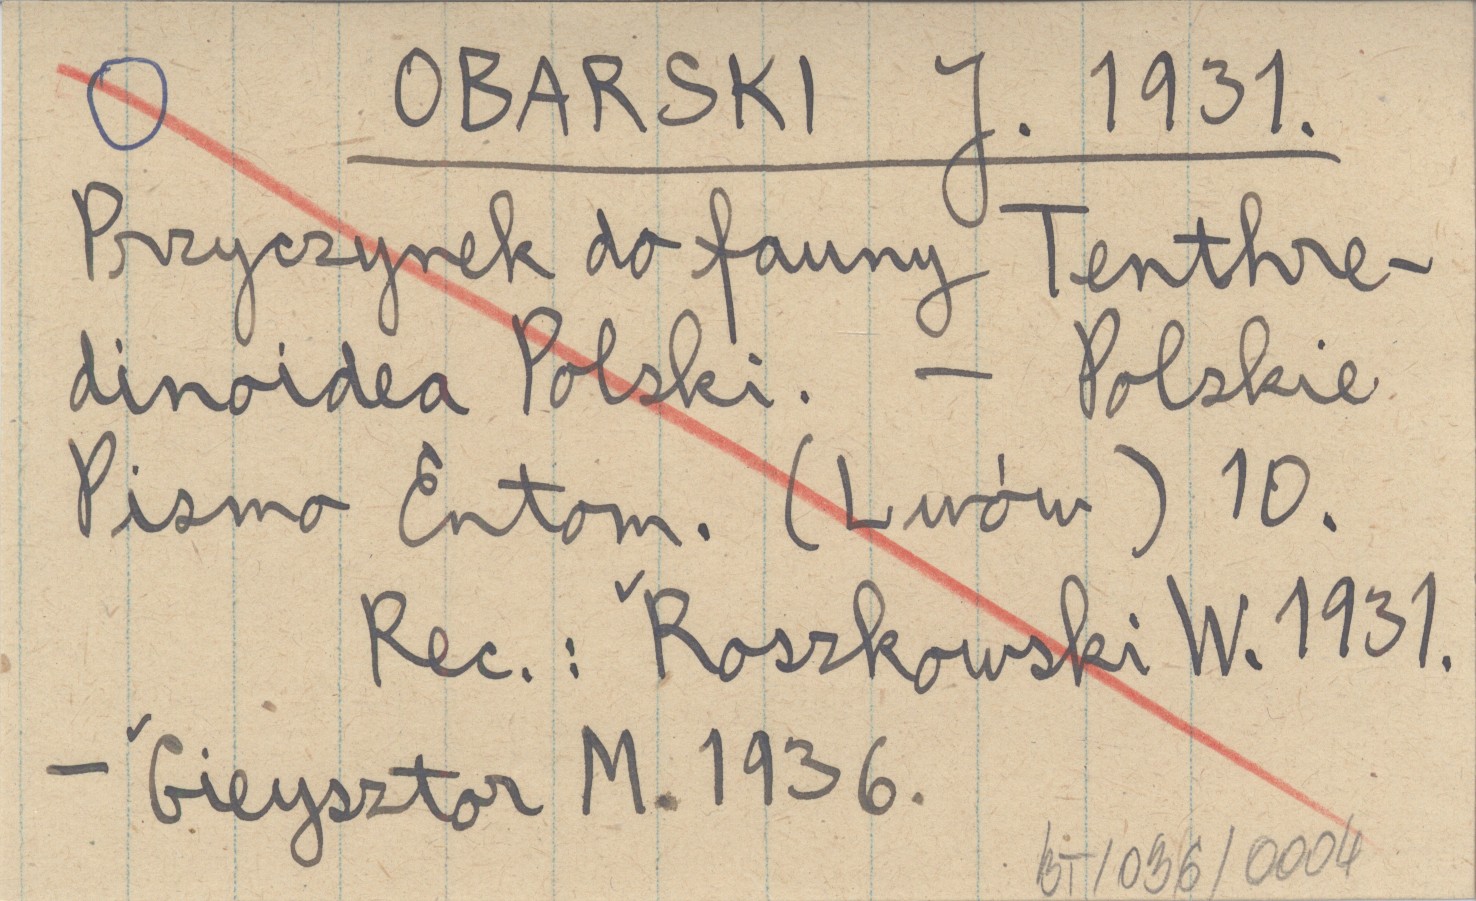 OBARSKI J. 1931.
Przyczynek do fauny Tenthre-
dinoidea Polski. — Polskie
Pismo Entom. (Lwów) 10.
Rec.: ˇRoszkowski W. 1931.
— ˇGieysztor M. 1936.
BT/036/0004